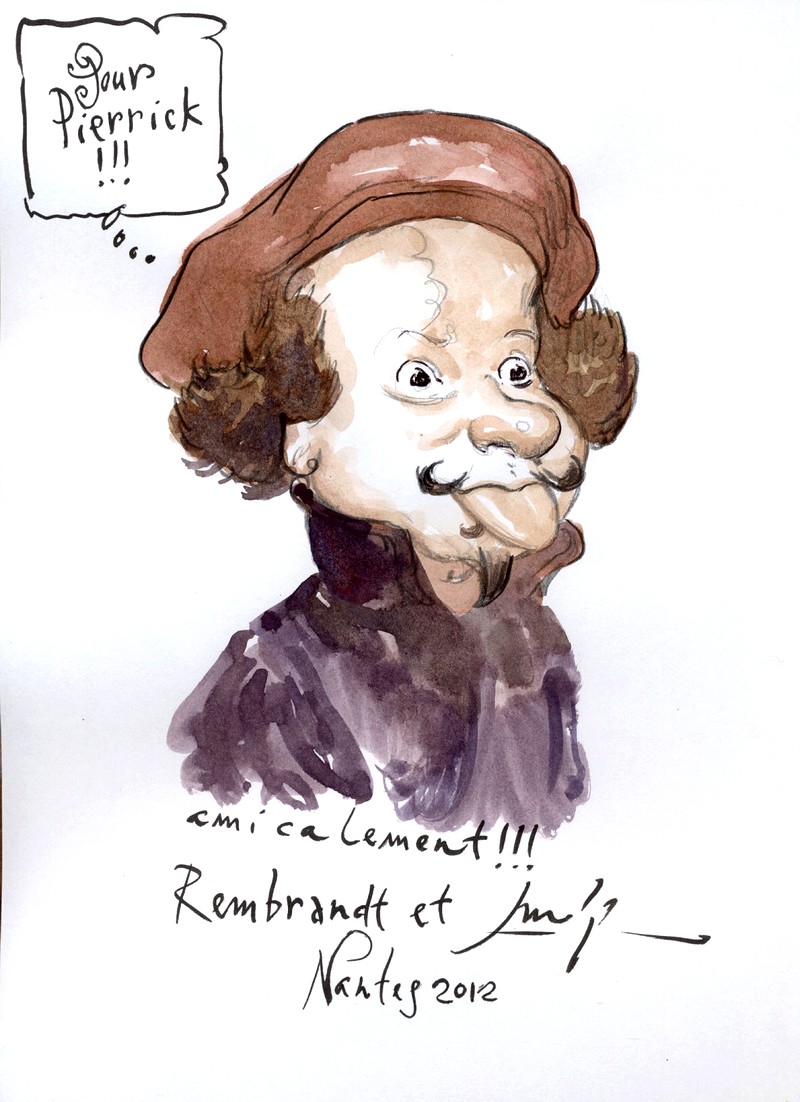 Pour
Pierrick
!!!
amicalement!!!
Rembrandt et
Nantes 2012